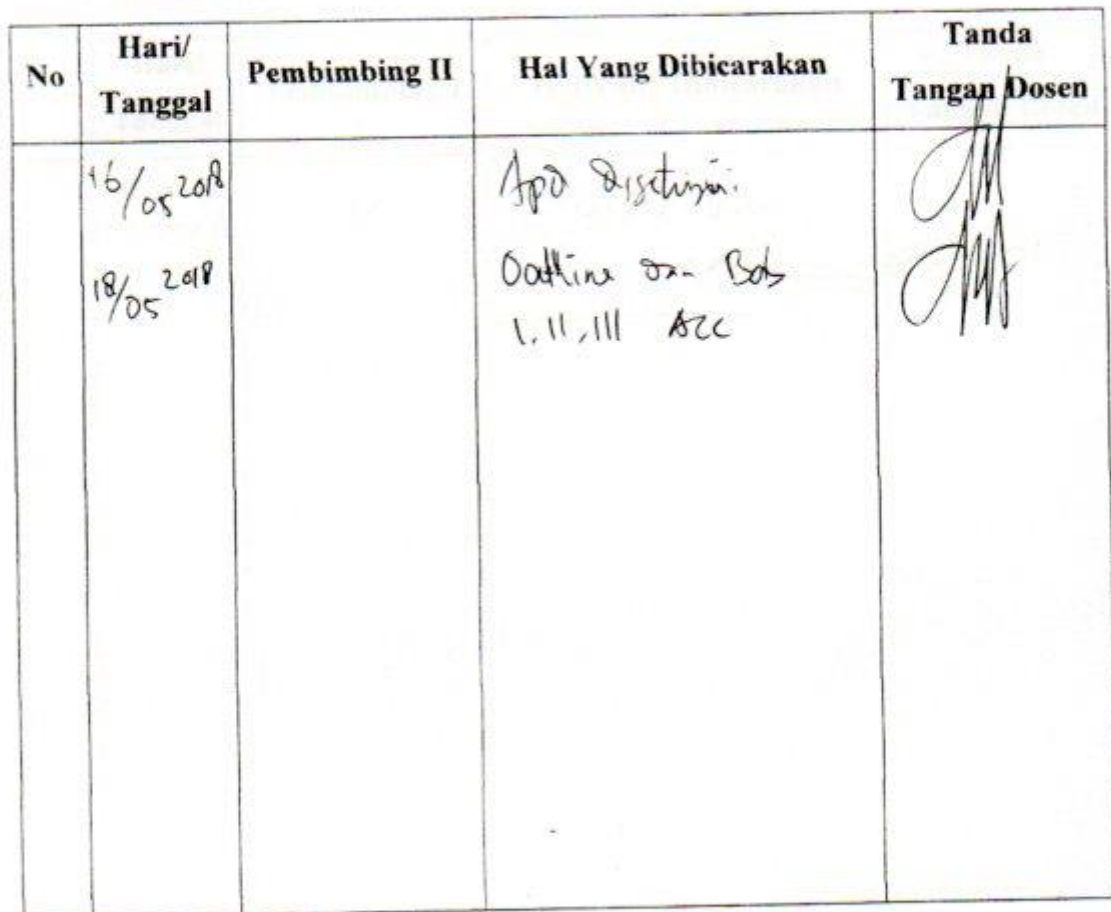 No Hari/ Tanggal Pembimbing II Hal Yang Dibicarakan Tanda Tangan Dosen
16/05 2018 Apd disetujui.
18/05 2018 Outline dan Bab
I, II, III Acc